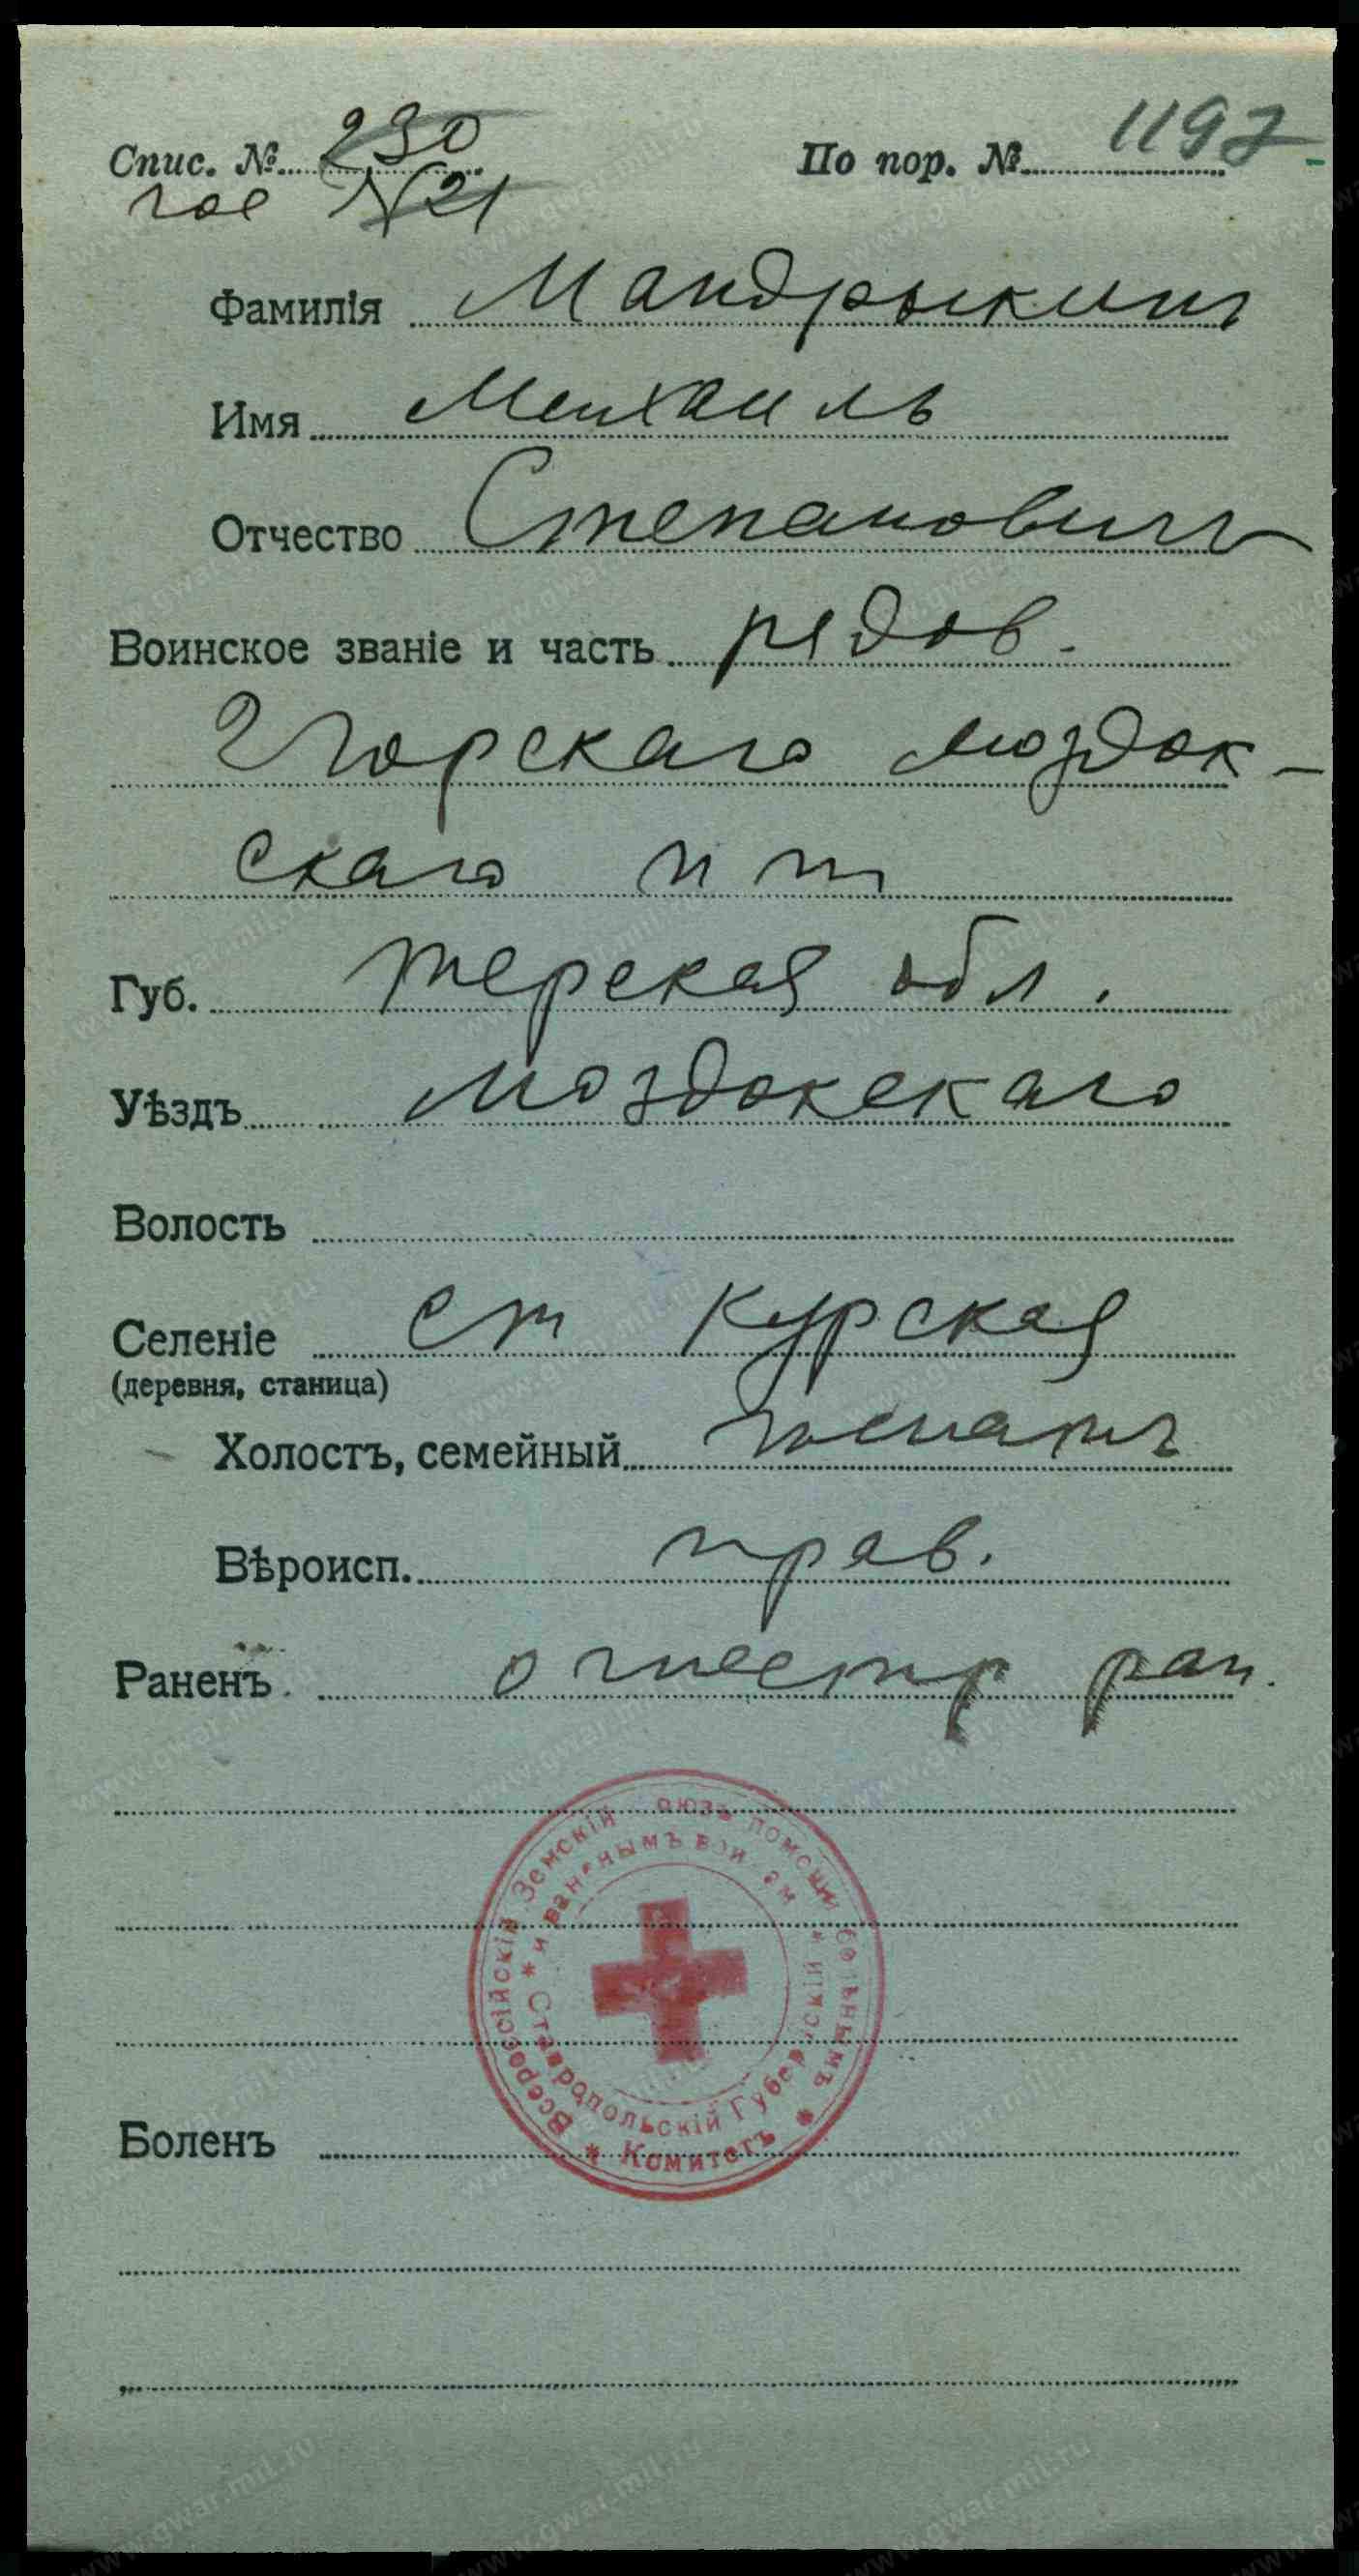 Спис. № 230 По пор. № 1197
гос N21
Фамилія Мандрыкинъ
Имя Михаилъ
Отчество Степановичъ
Воинское званіе и часть рядов.
2 Горскаго моздок-
скаго п п
Губ. Терская обл.
Уѣздъ Моздокскаго
Волость
Селеніе ст Курская
(деревня, станица)
Холостъ, семейный женатъ
Вѣроисп. прав.
Раненъ огнестр ран.
Всероссійскій Земскій Союзъ помощи больнымъ
и раненымъ воинам
Ставропольскій Губернскій
Комитетъ
Боленъ